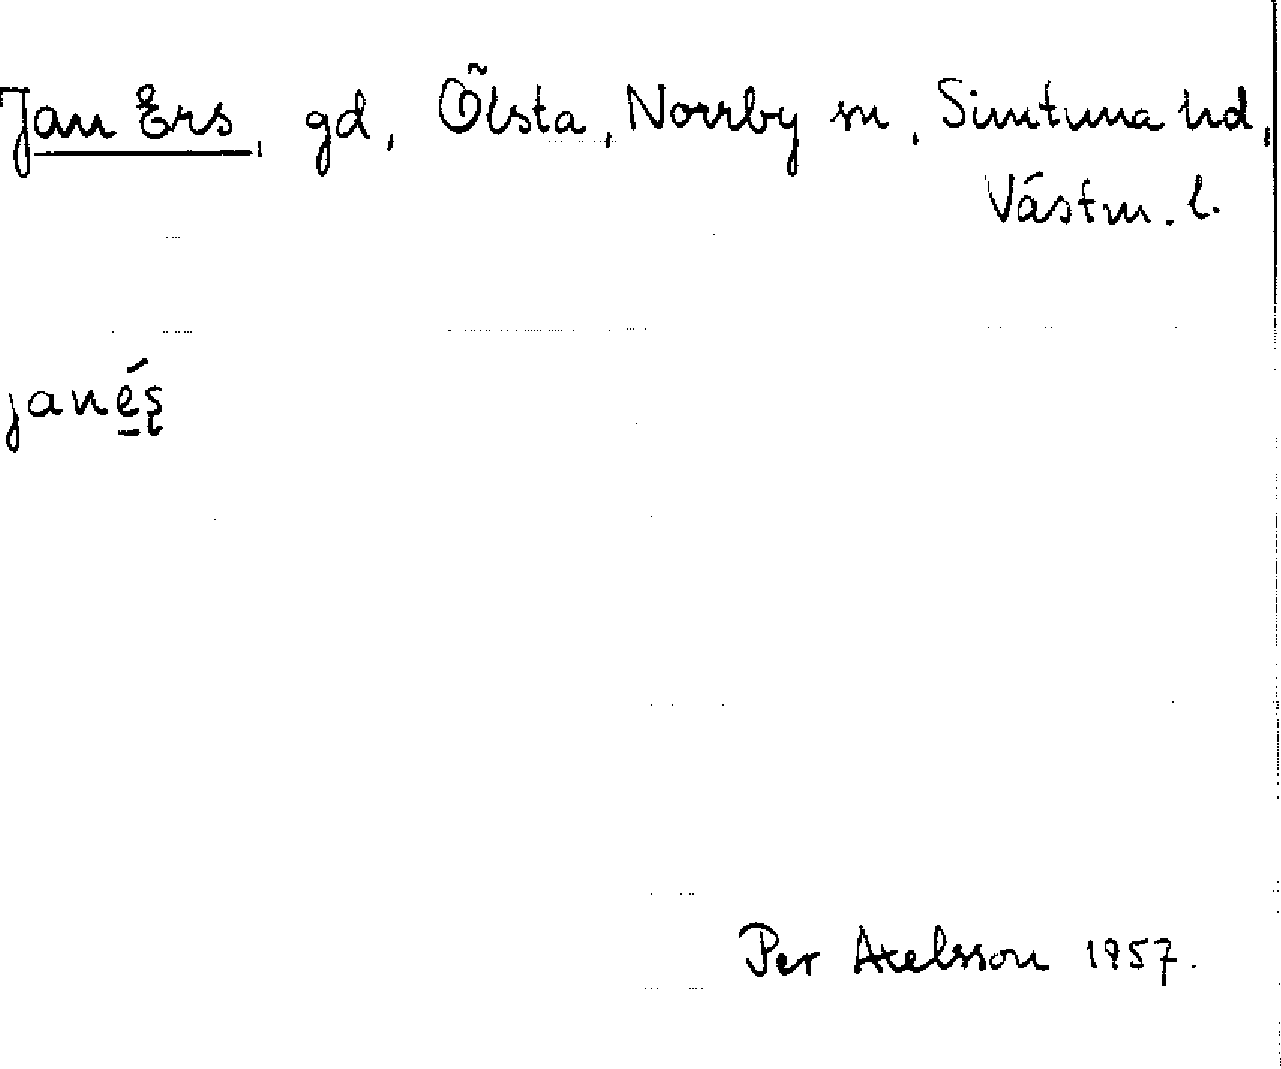 Jan Ers, gd, Ölsta, Norrby sn, Simtuna hd,
Västm. l.
janés̩
Per Axelsson 1957.